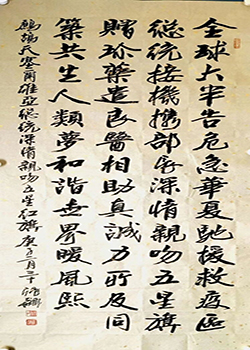 全球大半告危急華夏馳援救疫區
總統接機攜部屬深情親吻五星旗
贈珍藥遣良醫相助真誠力所及同
築共生人類夢和諧世界暖風熙
鷓鴣天塞爾維亞總統深情親吻五星紅旗庚子